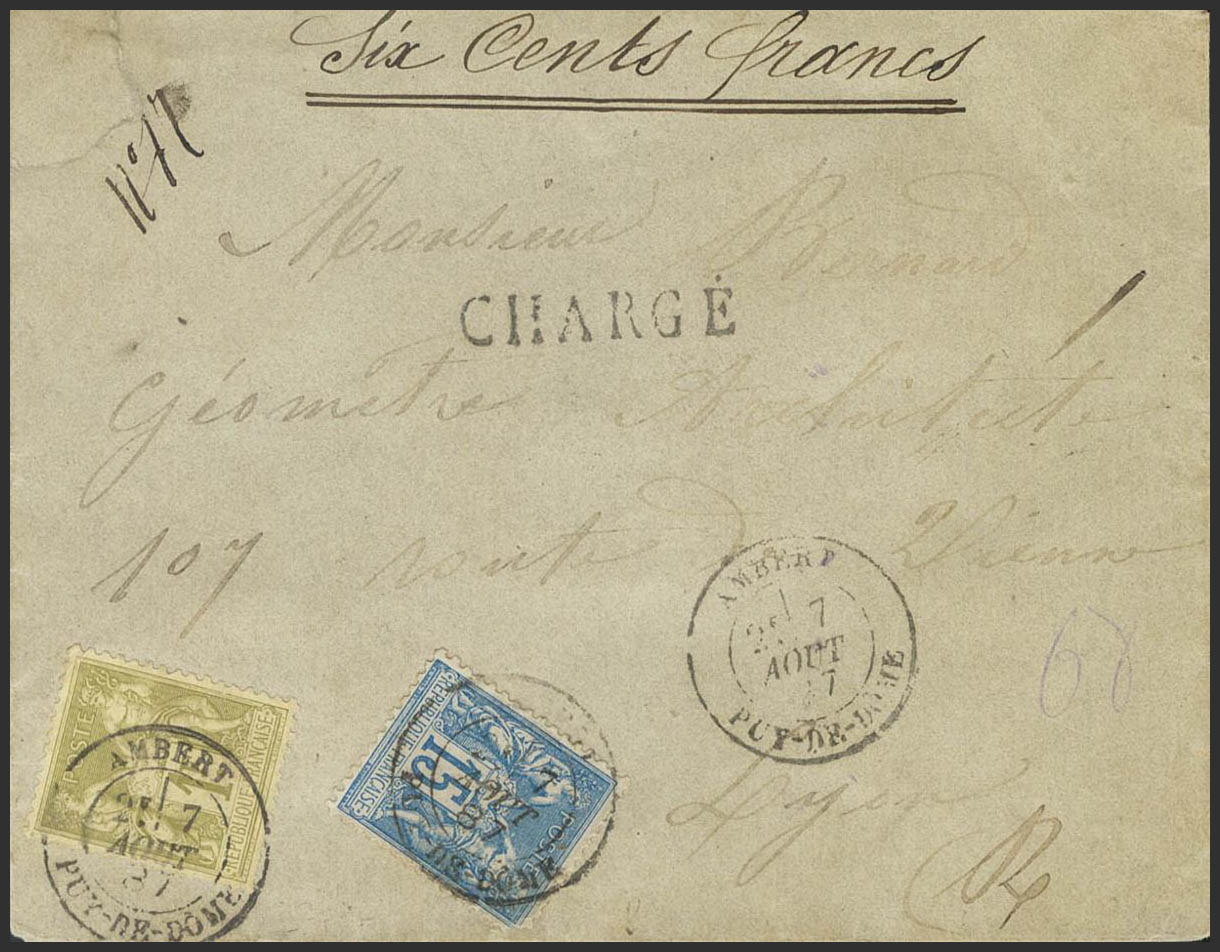 Six Cents francs
Monsieur Bernard
CHARGÉ
Géomètre Architecte
107 route de Vienne
AMBERT
2E 7
AOUT
87
PUY-DE-DOME
68
Lyon
R
POSTE
1F
REPUBLIQUE FRANÇAISE
AMBERT
2E 7
AOUT
87
PUY-DE-DOME
REPUBLIQUE FRANÇAISE
15
POSTE
7
AOUT
87
-DE-DOME